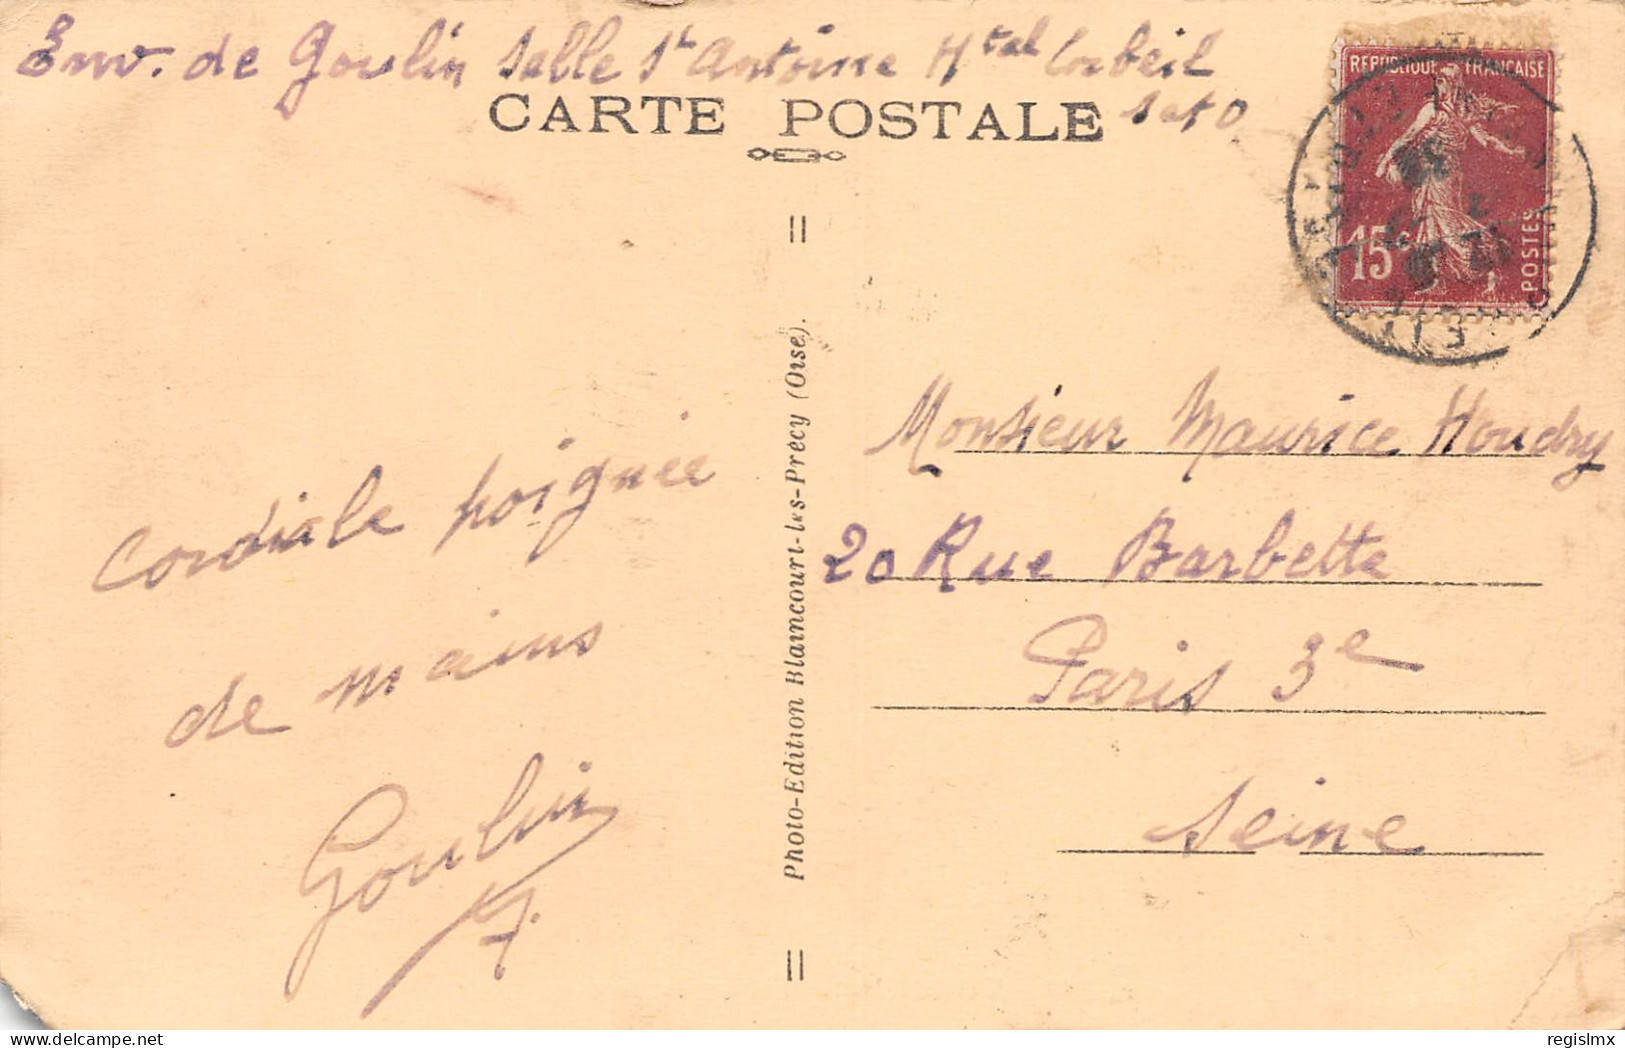 Env. de Goulin Salle St Antoine Htal Corbeil
S et O
CARTE POSTALE
REPUBLIQUE FRANÇAISE
15c
POSTES
Cordiale poignée
de mains
Goulin
Photo-Edition Blaincourt-les-Précy (Oise).
Monsieur Maurice Houdry
20 Rue Barbette
Paris 3e
Seine
regislmx